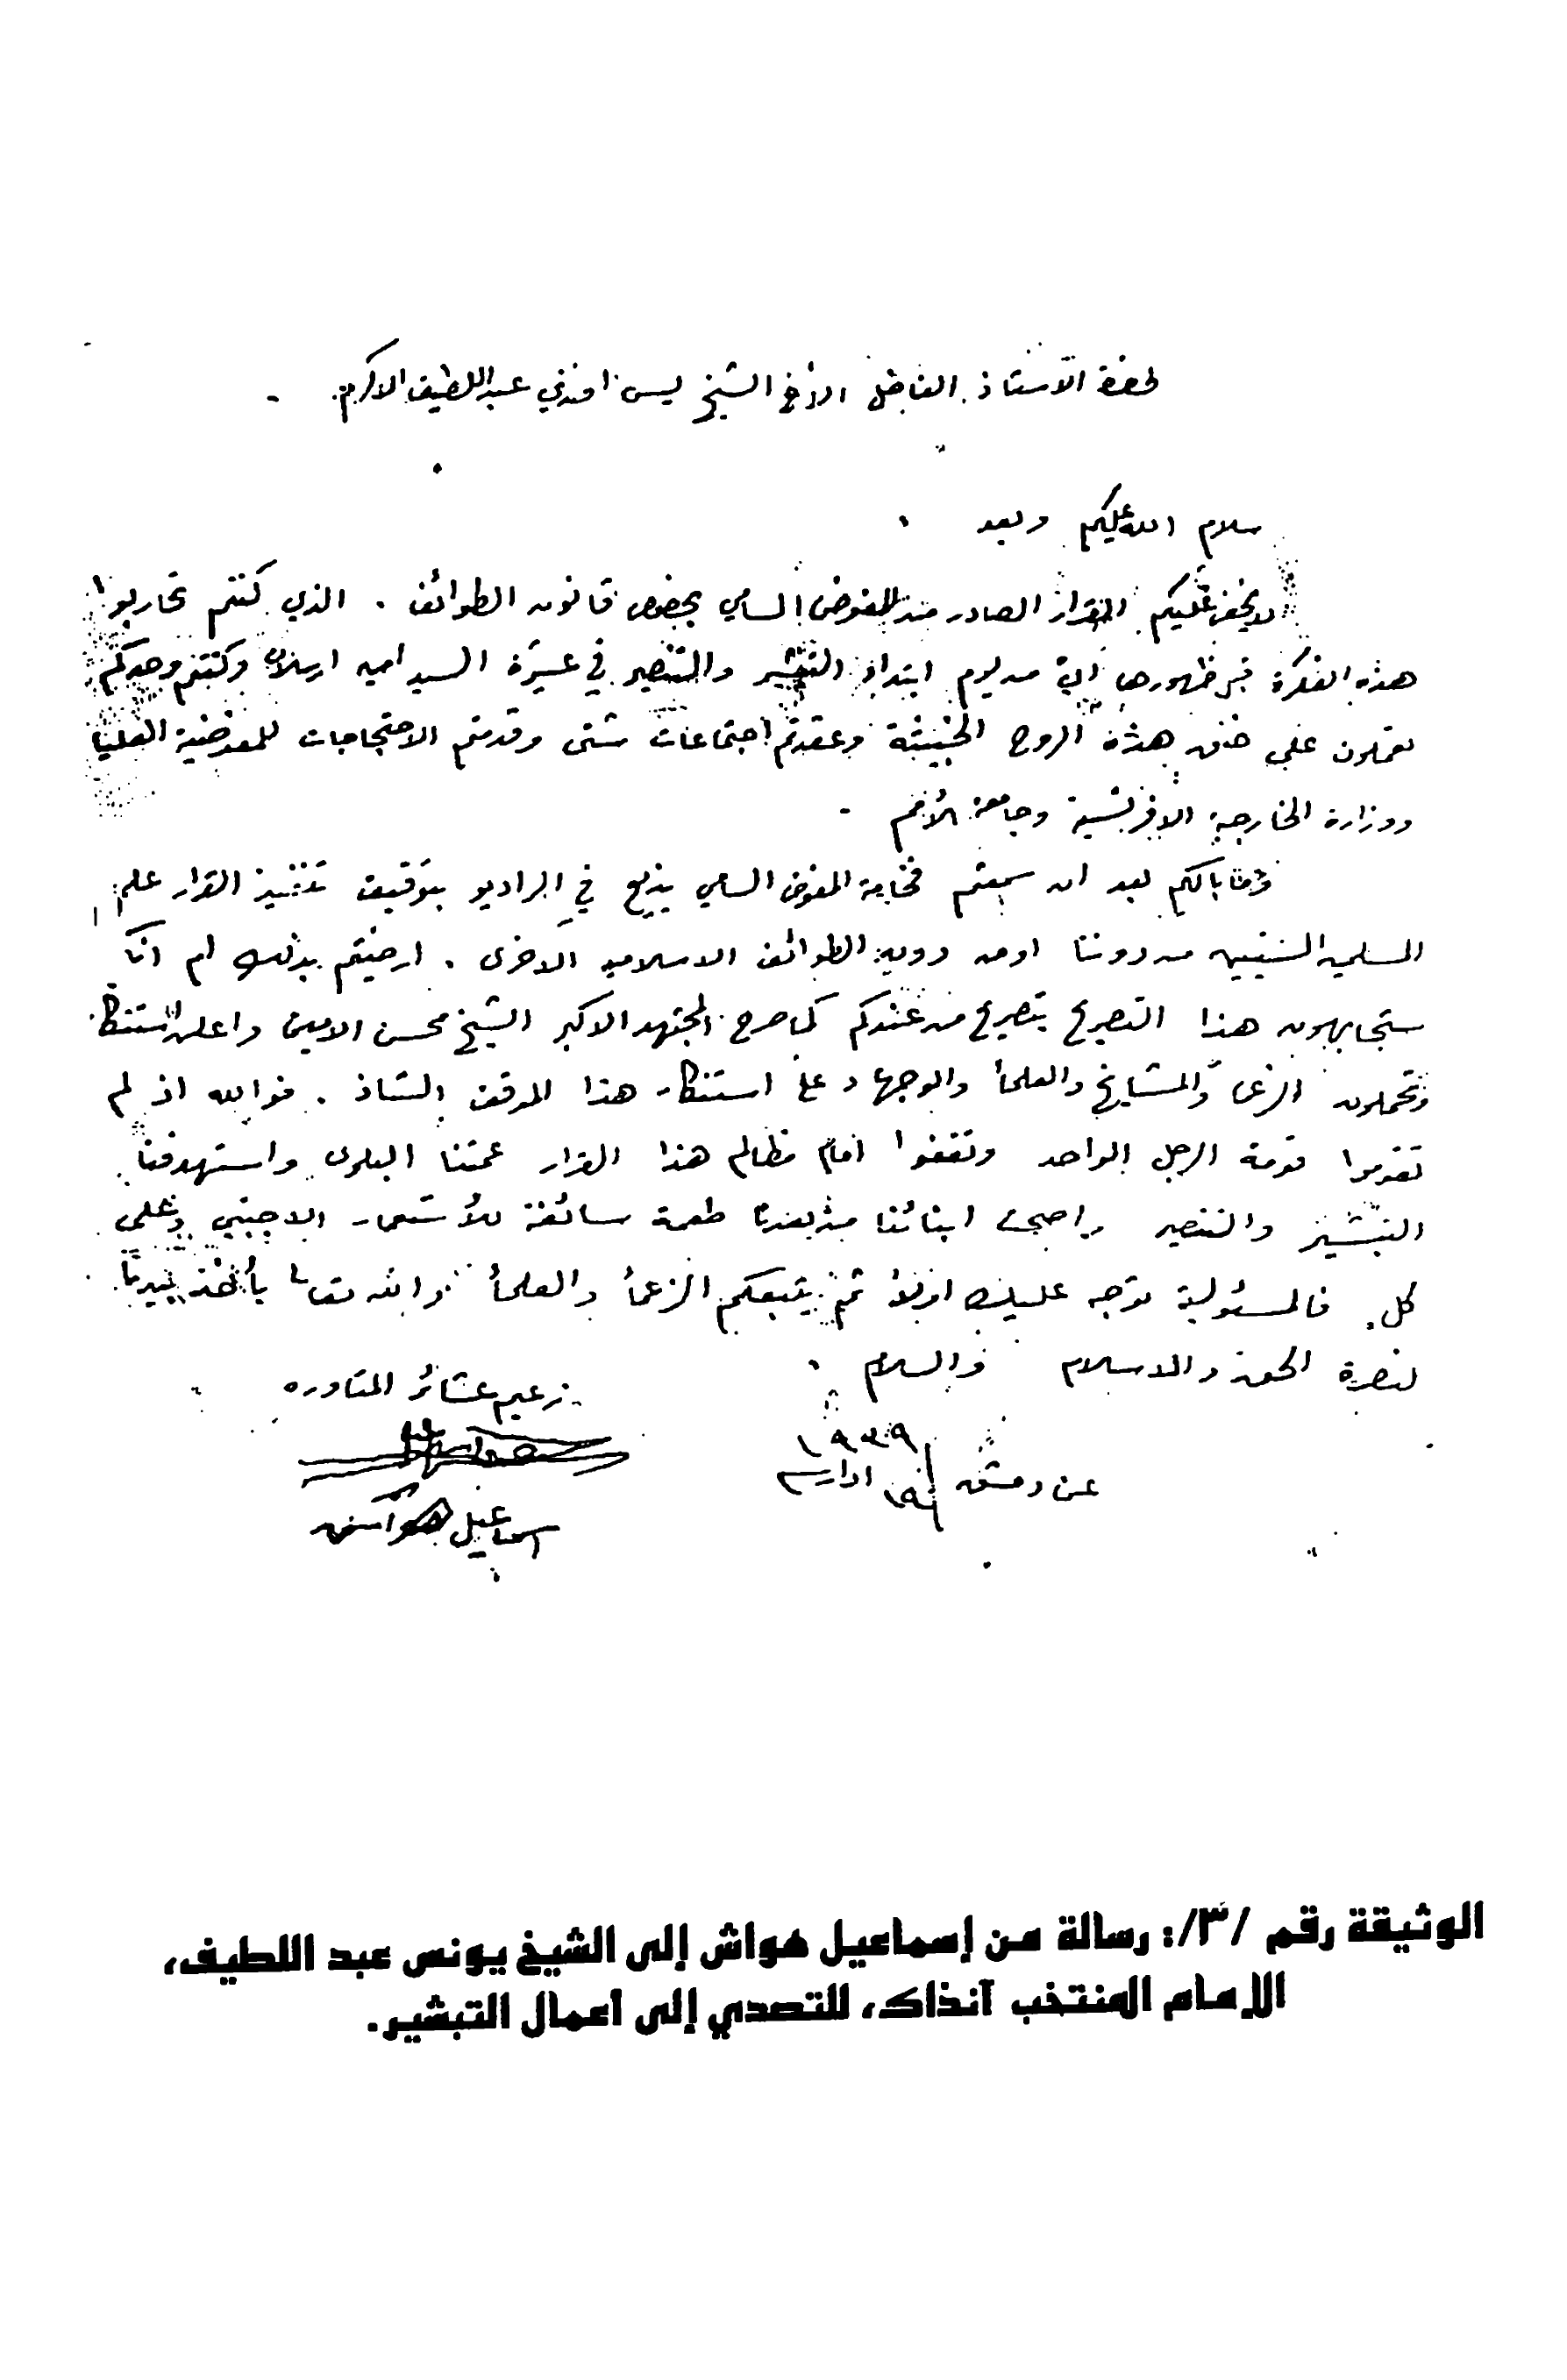 لحضرة الاستاذ الفاضل الأخ الشيخ يونس افندي عبد اللطيف الاكرم
سلام الله عليكم وبعد
لا يخف عليكم القرار الصادر من المفوض السامي بخصوص قانون الطوائف . الذي كنتم تحاربوا
هذه الفكرة قبل ظهورها من يوم ابتداء التبشير والتنصير في عشيرة السيد امين ارسلان وكنتم وحدكم
تعملون على خنق هذه الروح الخبيثة وعقدتم اجتماعات شتى وقدمتم الاحتجاجات للمفوضية العليا
ووزارة الخارجية الافرنسية وجامعة الأمم
وما بالكم بعد ان سمعتم فخامة المفوض السامي يذيع في الراديو بتوقيف تنفيذ القرار على
المسلمين السنيين من دوننا او من دون الطوائف الاسلامية الاخرى . ارضيتم بذلك ام انكم
ستجابهون هذا التصريح بتصريح من عندكم كما صرح المجتهد الاكبر الشيخ محسن الامين واعلن استنكاره
وتحملون الزعما والمشايخ والعلمأ والوجهاء على استنكار هذا الموقف الشاذ . فوالله اذ لم
تقوموا قومة الرجل الواحد وتقفوا امام مظالم هذا القرار عمتنا البلوى واستهدفنا
التبشير والتنصير واصبحت ابنائنا من بعدنا طعمة سائغة للأستعمار الاجنبي وعلى
كل . فالمسئولية توجه عليك اولاً ثم يتبعكم الزعمأ والعلمأ والله تعا لى يأخذ بيدنا
لنصرة الحق والاسلام والسلام .
زعيم عشائر المتاوره
عن دمشق ١٩ اذار ١٩٣٩
اسماعيل هواش
الوثيقة رقم /٣/: رسالة من إسماعيل هواش إلى الشيخ يونس عبد اللطيف،
الإمام المنتخب آنذاك، للتصدي إلى أعمال التبشير.